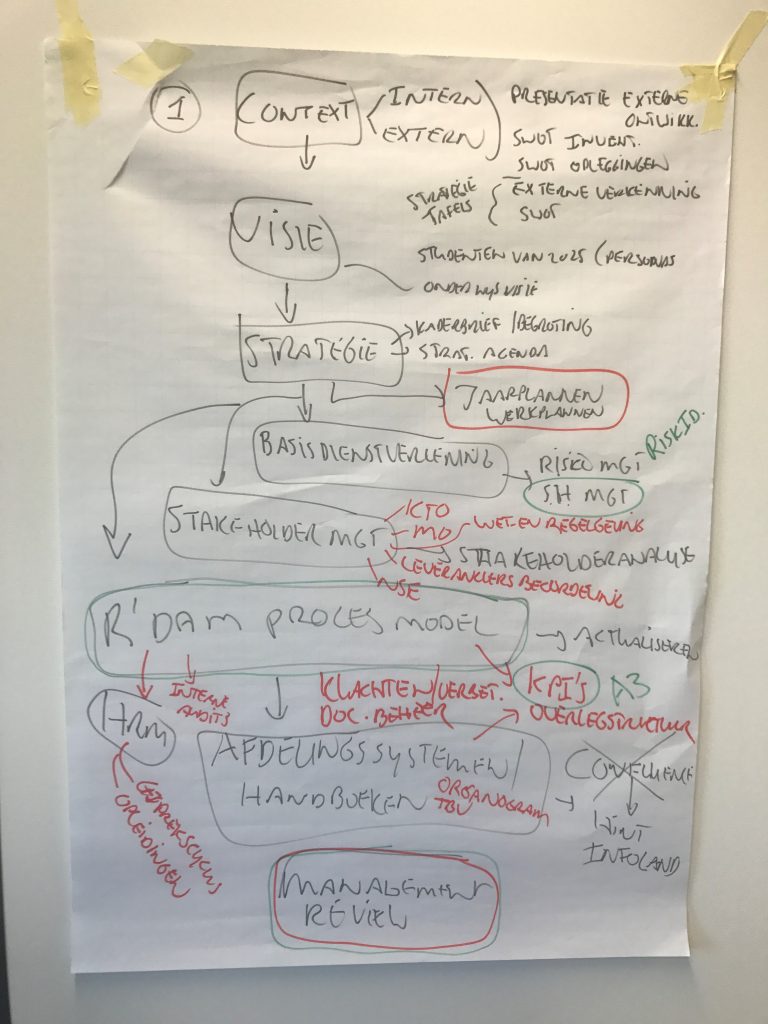 1
CONTEXT
INTERN
EXTERN
PRESENTATIE EXTERNE
ONTWIKK.
SWOT INVENT.
SWOT OPLEGGINGEN
STRATEGIE
TAFELS
EXTERNE VERKENNING
SWOT
VISIE
STUDENTEN VAN 2025 (PERSONAS
ONDERWIJSVISIE
STRATEGIE
KADERBRIEF / BEGROTING
STRAT. AGENDA
JAARPLANNEN
WERKPLANNEN
BASISDIENSTVERLENING
RISICO MGT
RISKID.
S.H MGT
STAKEHOLDER MGT
KTO
MO
WET-EN REGELGEVING
STAKEHOLDERANALYSE
LEVERANCIERS BEOORDELING
NSE
R'DAM PROCES MODEL
ACTUALISEREN
INTERNE
AUDITS
KLACHTEN/VERBET.
DOC. BEHEER
KPI'S
A3
OVERLEGSTRUCTUUR
HRM
GESPREKSCYCLUS
OPLEIDINGEN
AFDELINGSSYSTEMEN/
HANDBOEKEN
ORGANOGRAM
TBV
CONFLUENCE
HINT
INFOLAND
MANAGEMENT
REVIEW